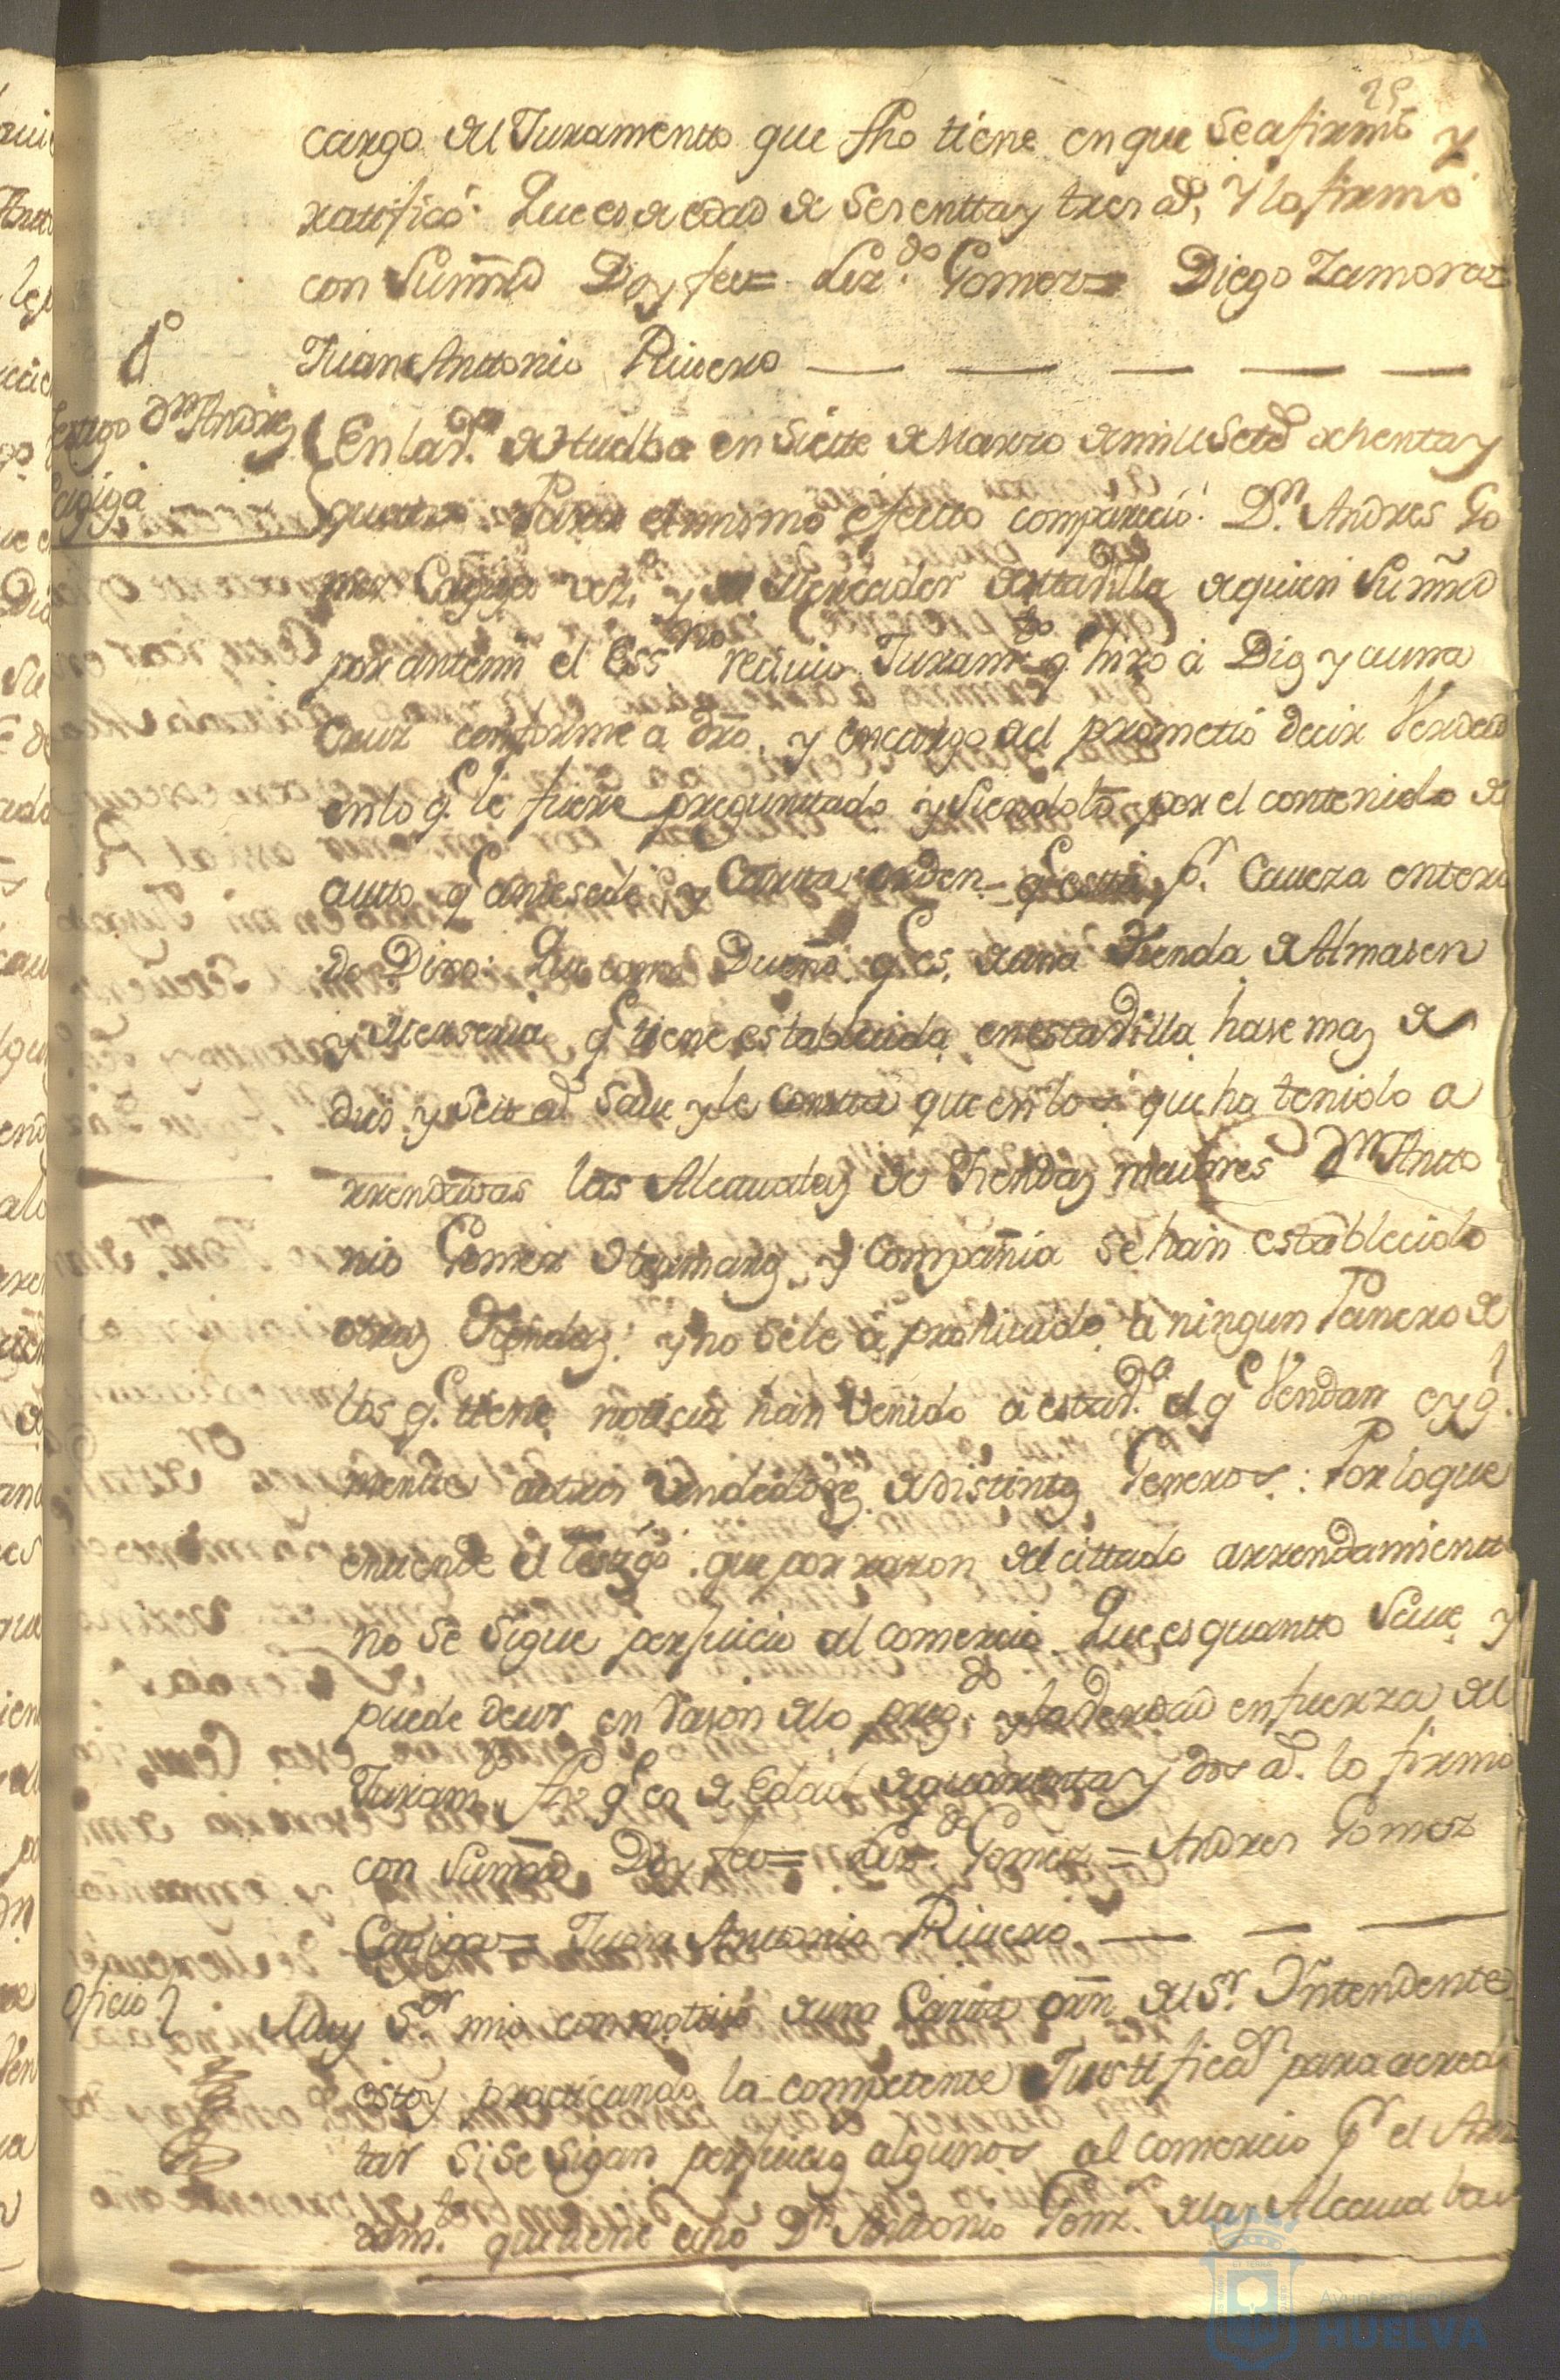 25
cargo del Juramento que fho tiene en que se afirmó y
ratificó. Que es de edad de sesentta y tres ad. Y lo firmó
con Sumrd Doy fee= Lizdo. Gomez= Diego Zamora=
Juan Anttonio Rivero
do
testigo Dn Andres
Cagiga
En la Va. de Huelba en Siette de Marzo de mill Setd ochenta y
quatro Para el mismo efectto compareció Dn. Andres Go
mez Cagiga vez. y Mercader de esta Villa de quien Sumrd
por antemi el Essno reciuio Juramto q. hizo á Dios y a una
Cruz conforme a dro. y encargo del prometió decir Verdad
en lo q. le fuere pregunttado y siendolo por el contenido de
autto qe antesede, y Cartta orden qe estta pr. Caveza entera
do Dixo: Que como Dueño qe es de una Tienda de Almasen
y Merseria qe tiene establecida en esta Villa hase mas de
dies y seis ad Save y le consta que en los que ha tenido a
rrendadas las Alcavalas de Tiendas maiores Dn Antto
nio Gomez Hermano y Compañia se han establecido
otras Tiendas y no se le á prohivido á ningun Panero de
los q. tiene noticia han venido a esta Va. el qe Vendan eyg.
mente a otros vendedores de distintos Generos: Por lo que
entiende el testigo que por razon del cittado arrendamientto
no se sigue perjuicio al comercio. Que es quantto Save y
puede decir en rason de lo pregdo. y la Verdad en fuerza del
Juramto. fho qe es de Edad de quarenta y dos ad. lo firmó
con Sumrd Doy fee= Lizdo. Gomez = Andres Gomez
Cagiga= Juan Anttonio Rivero
Oficio
Muy Sor mio con motivo de una Cartta orn del Sr. Yntendente
estoy practicando la competente Justificacn para acredi
tar si se sigan perjuicios algunos al comercio pr el Arren
damto. que tiene echo Dn Antonio Gomz. de las Alcavalas
Ayuntamiento
HUELVA